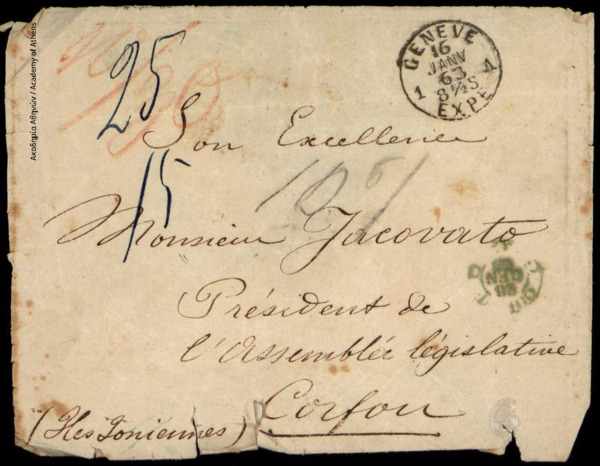 Ακαδημία Αθηνών / Academy of Athens
25
GENEVE
16
JANV
63
8½S
1 1
EXPE
Son Excellence
15
Monsieur Jacovato
Président de
l'Assemblée législative
Corfou
(Iles Ioniennes)